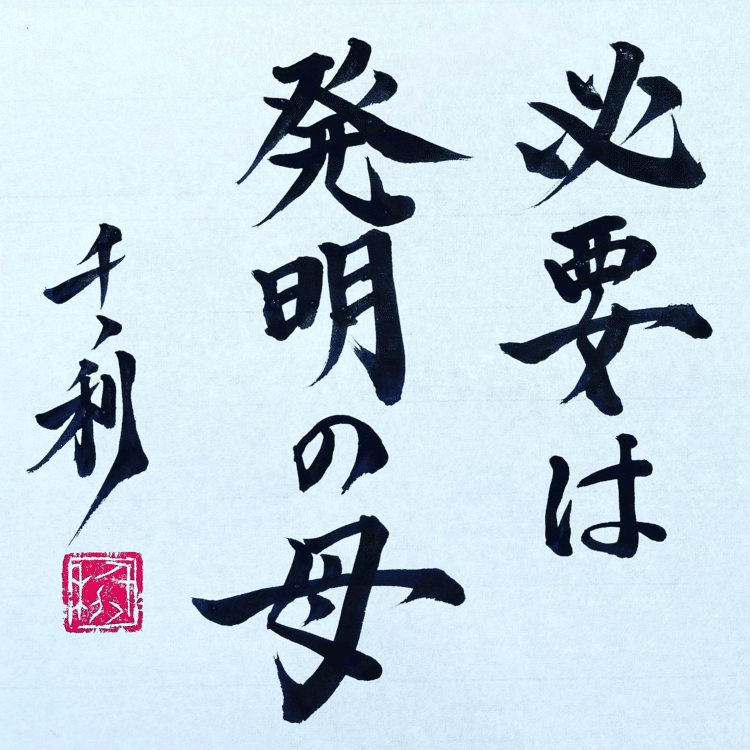 必要は
発明の母
千々利